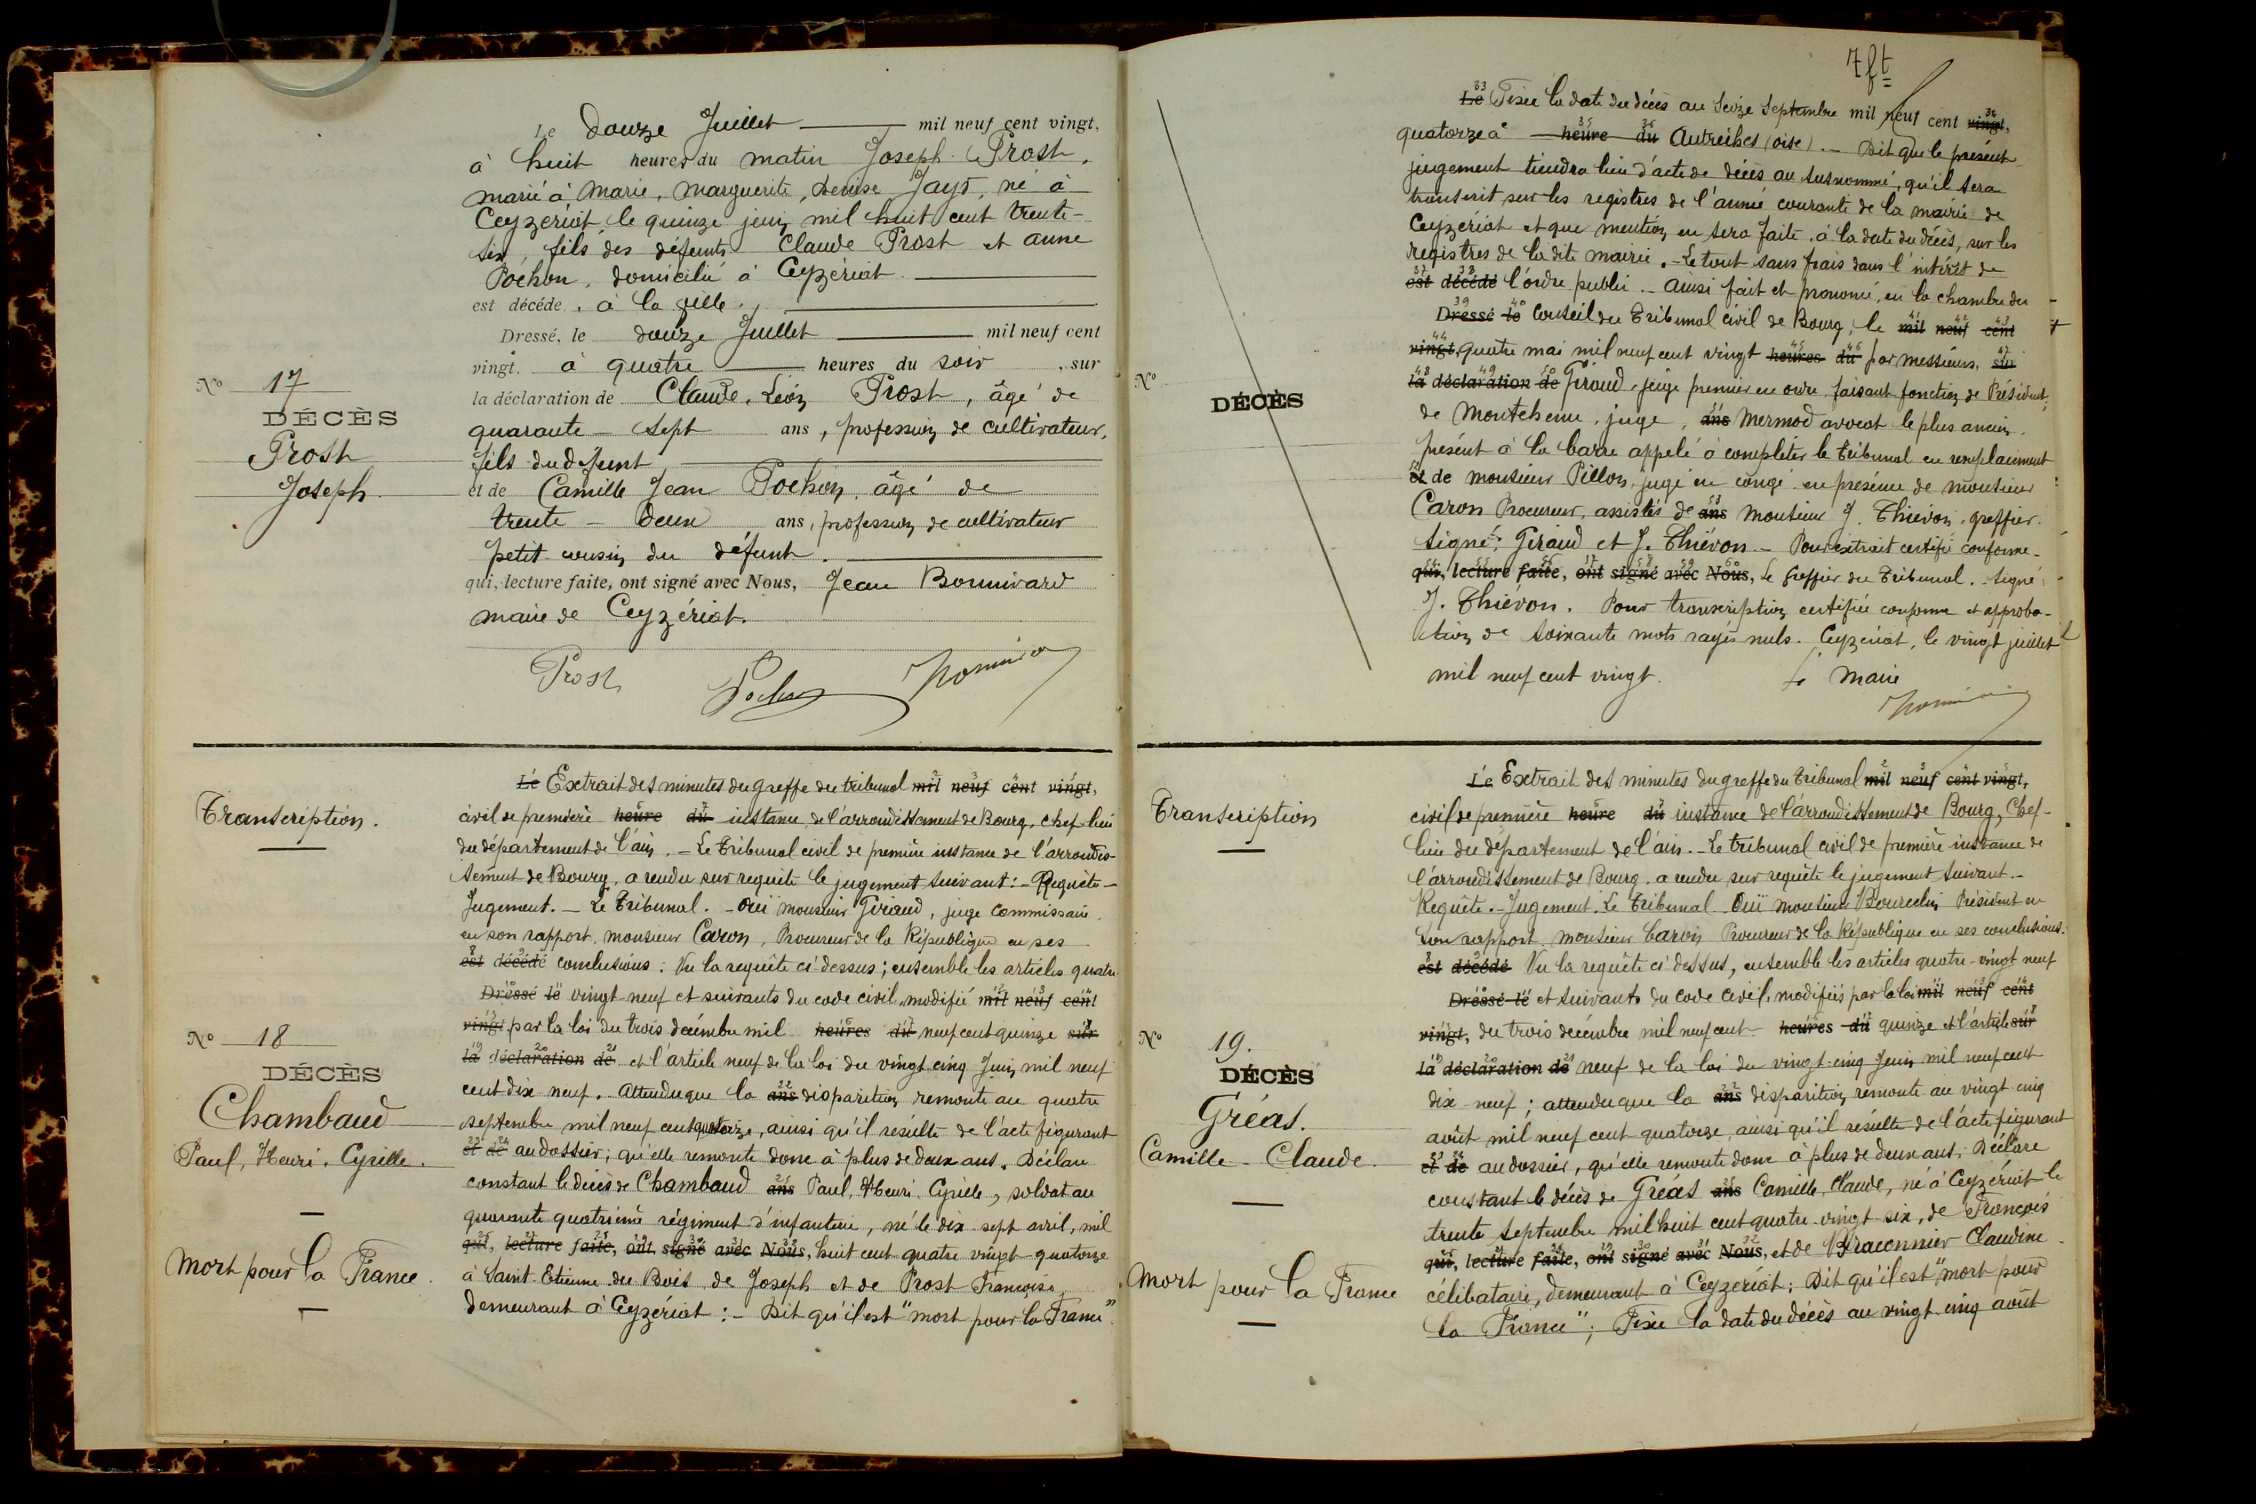 Le douze Juillet mil neuf cent vingt,
à huit heures du matin Joseph Prost,
marié à Marie, Marguerite, Denise Jayr, né à
Ceyzériat, le quinze juin mil huit cent trente-
six, fils des défunts Claude Prost et Anne
Pochon, domicilié à Ceyzériat.
est décédé, à la ville.
Dressé, le douze Juillet mil neuf cent
vingt, à quatre heures du soir, sur
la déclaration de Claude, Léon Prost, âgé de
quarante-sept ans, profession de cultivateur,
fils du défunt
et de Camille Jean Pochon, âgé de
trente-deux ans, profession de cultivateur
petit cousin du défunt.
qui, lecture faite, ont signé avec Nous, Jean Bonnivard
maire de Ceyzériat.
Prost
Pochon
N° 17
DÉCÈS
Prost
Joseph
Transcription.
N° 18
DÉCÈS
Chambaud
Paul, Henri, Cyrille.
Mort pour la France.
Le Extrait des minutes du greffe du tribunal mil neuf cent vingt,
civil de première heure du instance de l'arrondissement de Bourg, chef-lieu
du département de l'ain. - Le Tribunal civil de première instance de l'arrondis-
sement de Bourg, a rendu sur requête le jugement suivant: - Requête -
Jugement. - Le Tribunal. - Ouï monsieur Giraud, juge commissaire
en son rapport, monsieur Caron, Procureur de la République en ses
est décédé conclusions: Vu la requête ci-dessus; ensemble les articles quatre
Dressé le vingt-neuf et suivants du code civil, modifié mil neuf cent
vingt par la loi du trois décembre mil heures du neuf cent quinze sur
la déclaration de et l'article neuf de la loi du vingt-cinq Juin mil neuf
cent dix neuf. Attendu que la ans disparition remonte au quatre
septembre mil neuf cent quatorze, ainsi qu'il résulte de l'acte figurant
et de au dossier; qu'elle remonte donc à plus de deux ans. Déclare
constant le décès de Chambaud ans Paul, Henri, Cyrille, soldat au
quarante quatrième régiment d'infanterie, né le dix-sept avril, mil
qui, lecture faite, ont signé avec Nous, huit cent quatre vingt-quatorze
à Saint Etienne du Bois, de Joseph et de Prost Françoise,
demeurant à Ceyzériat: - Dit qu'il est "mort pour la France".
7 ft
Le Fixe la date du décès au seize Septembre mil neuf cent vingt,
quatorze à heure du Autrèches (oise). - Dit que le présent
jugement tiendra lieu d'acte de décès au susnommé, qu'il sera
transcrit sur les registres de l'année courante de la mairie de
Ceyzériat et que mention en sera faite, à la date du décès, sur les
registres de la dite mairie. - Le tout sans frais dans l'intérêt de
est décédé l'ordre public. - Ainsi fait et prononcé, en la chambre du
Dressé le Conseil du Tribunal civil de Bourg, le mil neuf cent
vingt, quatre mai mil neuf cent vingt heures du par messieurs, sur
la déclaration de Giraud, juge premier en ordre, faisant fonction de Président,
de Montchenu, juge, ans Mermod avocat le plus ancien
présent à la barre appelé à compléter le tribunal en remplacement
et de monsieur Pillon, juge en congé, en présence de monsieur
Caron Procureur, assistés de ans monsieur J. Thiévon, greffier.
Signé: Giraud et J. Thiévon. - Pour extrait certifié conforme -
qui, lecture faite, ont signé avec Nous, Le Greffier du Tribunal. - Signé:
J. Thiévon. Pour transcription certifiée conforme et approba-
tion de soixante mots rayés nuls. Ceyzériat, le vingt juillet
mil neuf cent vingt. Le Maire
N°
DÉCÈS
Transcription
N° 19.
DÉCÈS
Gréas.
Camille-Claude.
Mort pour la France
Le Extrait des minutes du greffe du Tribunal mil neuf cent vingt,
civil de première heure du instance de l'arrondissement de Bourg, Chef-
lieu du département de l'ain. - Le tribunal civil de première instance de
l'arrondissement de Bourg, a rendu sur requête le jugement suivant. -
Requête. - Jugement. Le Tribunal Ouï monsieur Bourcelin Président en
son rapport, monsieur Caron Procureur de la République en ses conclusions.
est décédé Vu la requête ci-dessus, ensemble les articles quatre-vingt neuf
Dressé le et suivants du code civil, modifiés par la loi mil neuf cent
vingt, du trois décembre mil neuf cent heures du quinze et l'article sur
la déclaration de neuf de la loi du vingt-cinq Juin mil neuf cent
dix-neuf; attendu que la ans disparition remonte au vingt cinq
août mil neuf cent quatorze, ainsi qu'il résulte de l'acte figurant
et de au dossier, qu'elle remonte donc à plus de deux ans; Déclare
constant le décès de Gréas ans Camille, Claude, né à Ceyzériat le
trente Septembre mil huit cent quatre-vingt six, de François
qui, lecture faite, ont signé avec Nous, et de Braconnier Claudine
célibataire, demeurant à Ceyzériat; Dit qu'il est "mort pour
la France"; Fixe la date du décès au vingt-cinq août